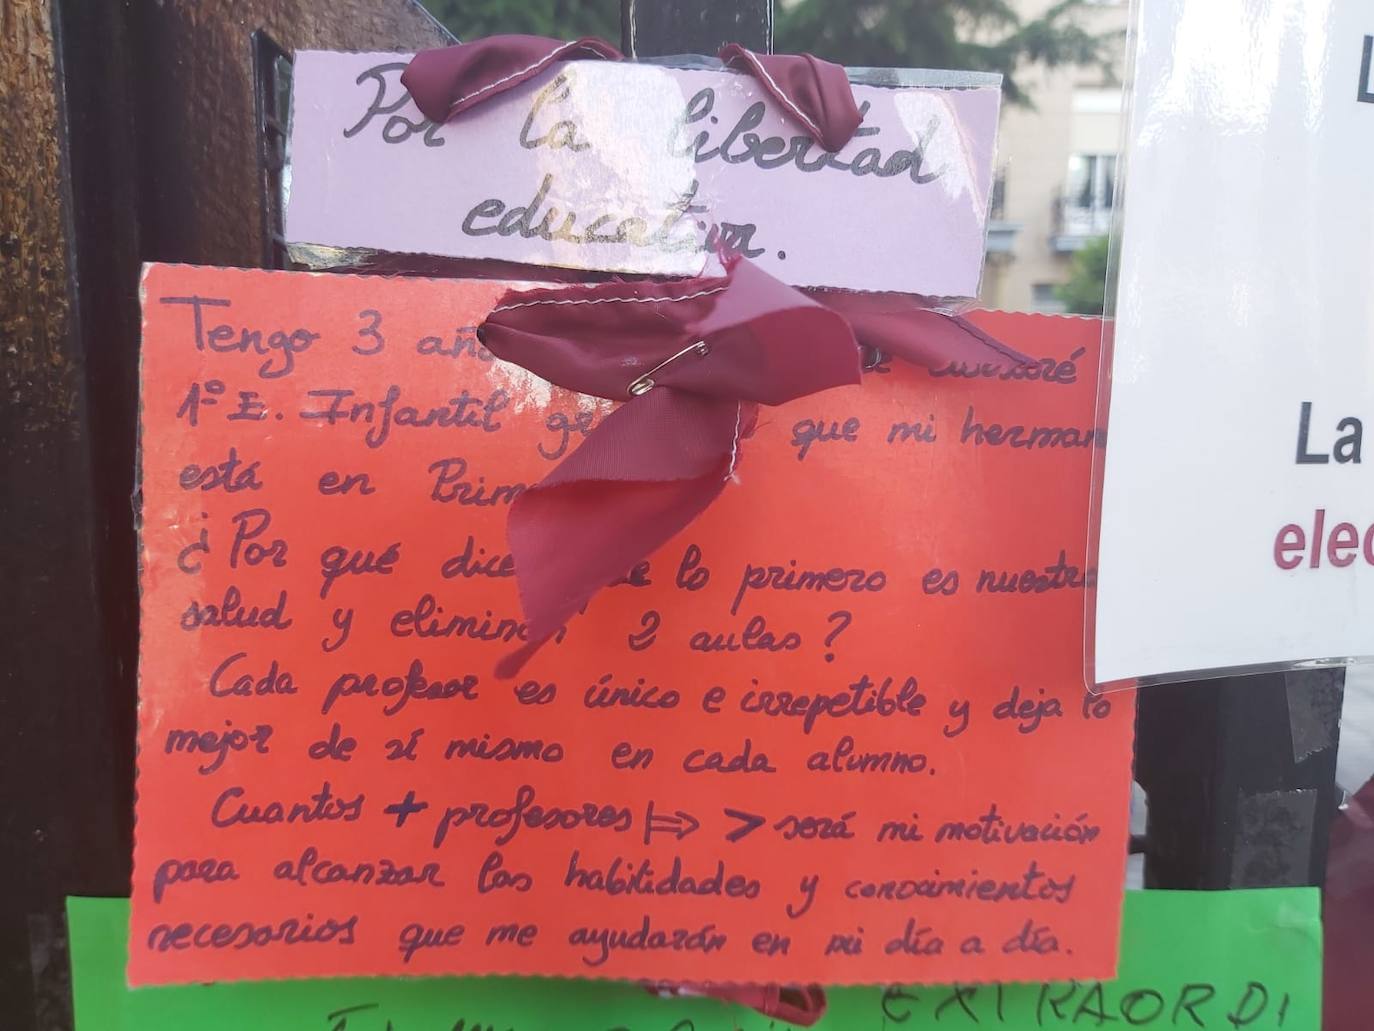 Por la libertad
educativa.
Tengo 3 cursaré
1º E. Infantil que mi
está en
¿Por qué lo primero es
salud y 2 aulas?
Cada profesor es único e irrepetible y deja lo
mejor de sí mismo en cada alumno.
Cuantos + profesores |⇒ > será mi motivación
para alcanzar las habilidades y conocimientos
necesarios que me ayudarán en mi día a día.
La
EXTRAORDI